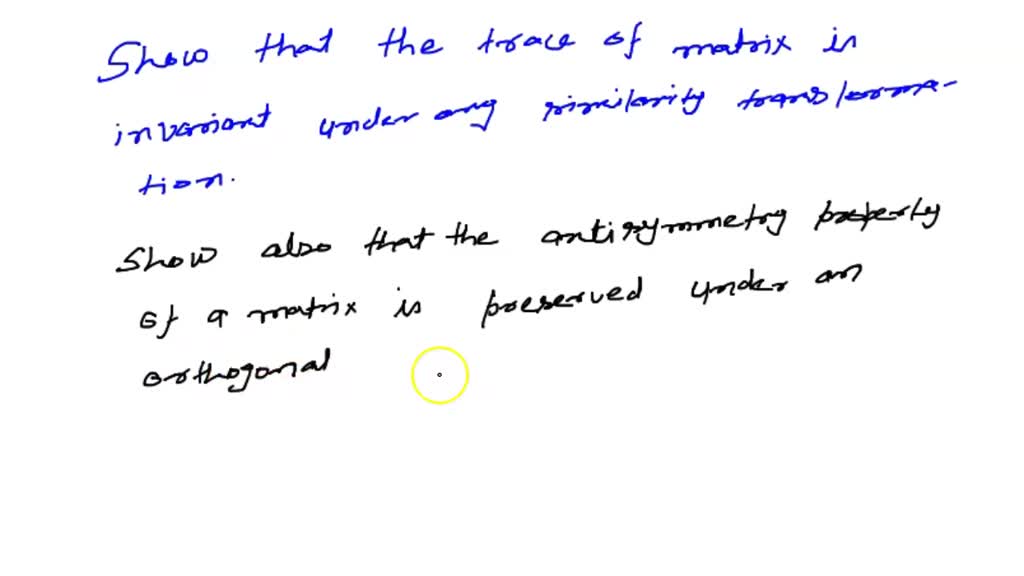 Show that the trace of matrix is
invariant under any similarity transforma-
tion.
Show also that the antisymmetry property
of a matrix is preserved under an
orthogonal